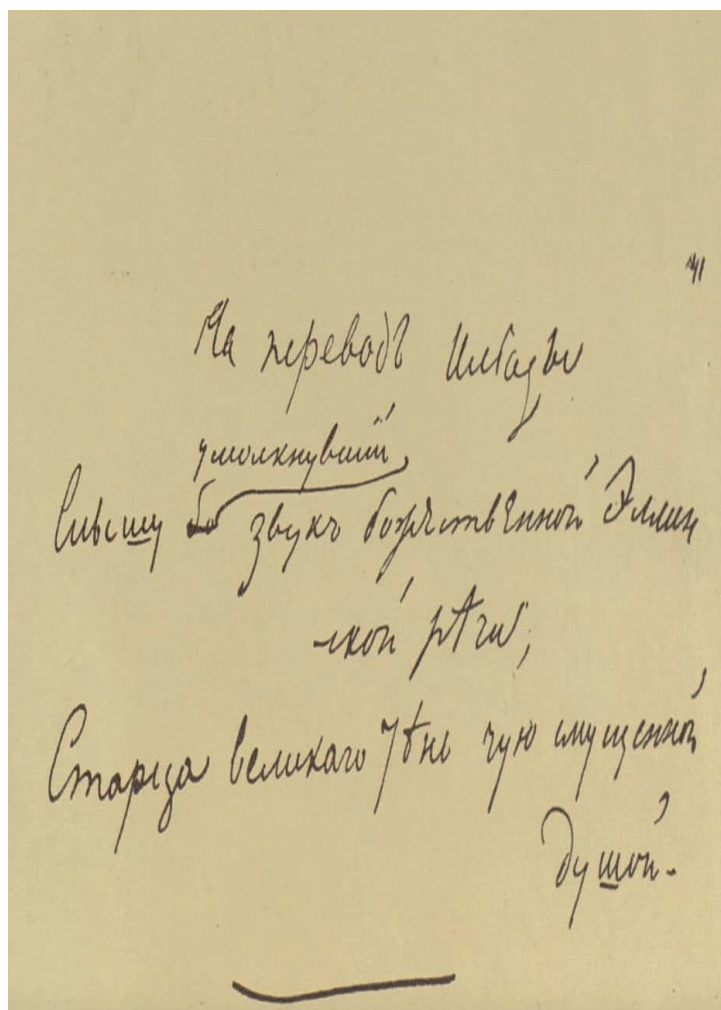 На переводъ Илiады
умолкнувшiй
Слышу звукъ божественной Эллин
-ской рѣчи;
Старца великаго тѣнь чую смущенной
душой.